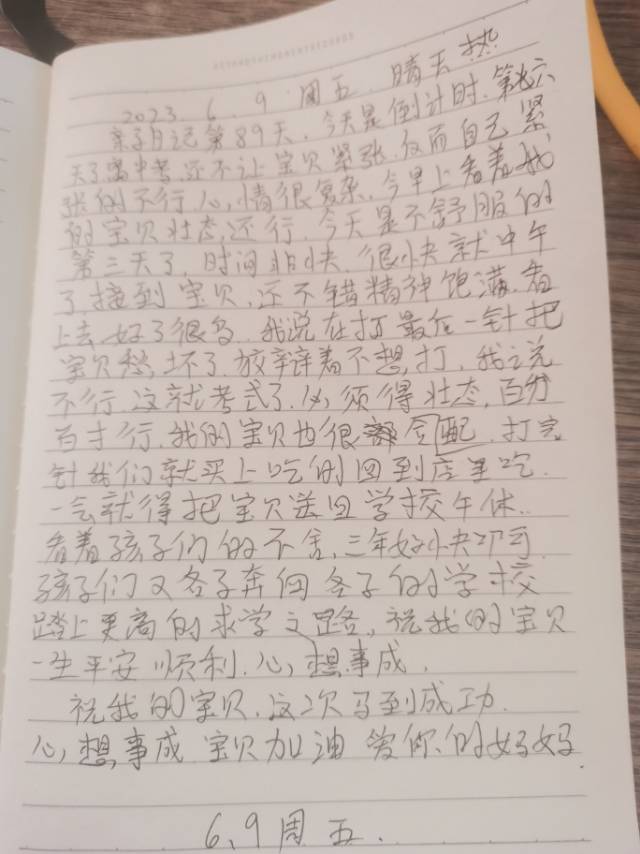 2023.6.9 周五.晴天 热
亲子日记第89天.今天是倒计时.第六
天了离中考.还不让宝贝紧张.反而自己紧
张的不行心,情很复杂.今早上看着我
的宝贝状态,还行.今天是不舒服的
第三天了.时间非快.很快就中午
了.接到宝贝.还不错精神饱满.看
上去好了很多.我说在打最后一针把
宝贝愁坏了.放辩着不想打.我说
不行.这就考式了.必须得状态.百分
百才行.我的宝贝也很配.打完
针我们就买上吃的回到店里吃.
一会就得把宝贝送回学校午休..
看着孩子们的不舍.三年好快
孩子们又各子奔向各子的学校
踏上更高的求学之路,.祝我的宝贝
一生平安顺利.心,想事成.
祝我的宝贝.这次马到成功.
心,想事成 宝贝加油 爱你的妈妈
6.9周五.